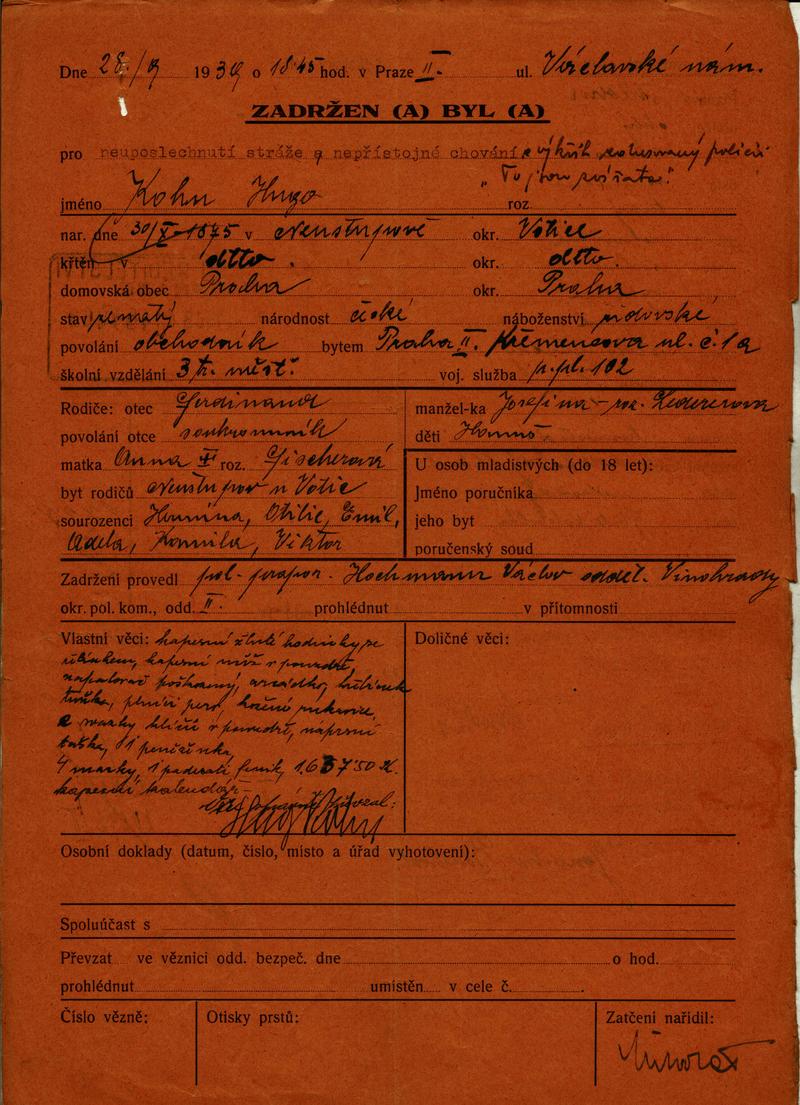 Dne 28/9 1939 o 18·45 hod. v Praze II. ul. Václavské nám.
ZADRŽEN (A) BYL (A)
pro neuposlechnutí stráže a nepřístojné chování výkřik policii
"To jsou zvířata."
jméno Kohn Hugo roz.
nar. dne 30/X 1875 v Neustupově okr. Votice
křtěn v dtto. okr. dtto.
domovská obec Praha okr. Praha
stav ženatý národnost české náboženství židovské
povolání obchodník bytem Praha II. Křemencova ul. č. 1a
školní vzdělání 3 tř. měšť. voj. služba p. pl. 102
Rodiče: otec Ferdinand
manžel-ka Josefina - roz. Ledererova
povolání otce soukromník
děti
matka Anna roz. Fischerová
U osob mladistvých (do 18 let):
byt rodičů Neustupov u Votic
Jméno poručníka
sourozenci Otilie, Emil,
jeho byt
Adela, Kamila, Viktor
poručenský soud
Zadržení provedl pol. prapor. Hochmann Václav odděl. Vinohrady
okr. pol. kom., odd. II. prohlédnut v přítomnosti
Vlastní věci: kapesní žluté hodinky se
Doličné věci:
řetízkem, kapesní nůž v pouzdře,
zapalovač
tužka, plnící pero, kožené rukavice,
2 svazky klíčů v pouzdře, náprsní
taška, 1 peněženka,
4 marky, 1 padesáti fenik, 1.637·50 K.
kapesní kalendář -
Hugo Kohn
Osobní doklady (datum, číslo, místo a úřad vyhotovení):
Spoluúčast s
Převzat ve věznici odd. bezpeč. dne o hod.
prohlédnut umístěn v cele č.
Číslo vězně: Otisky prstů: Zatčení nařídil: